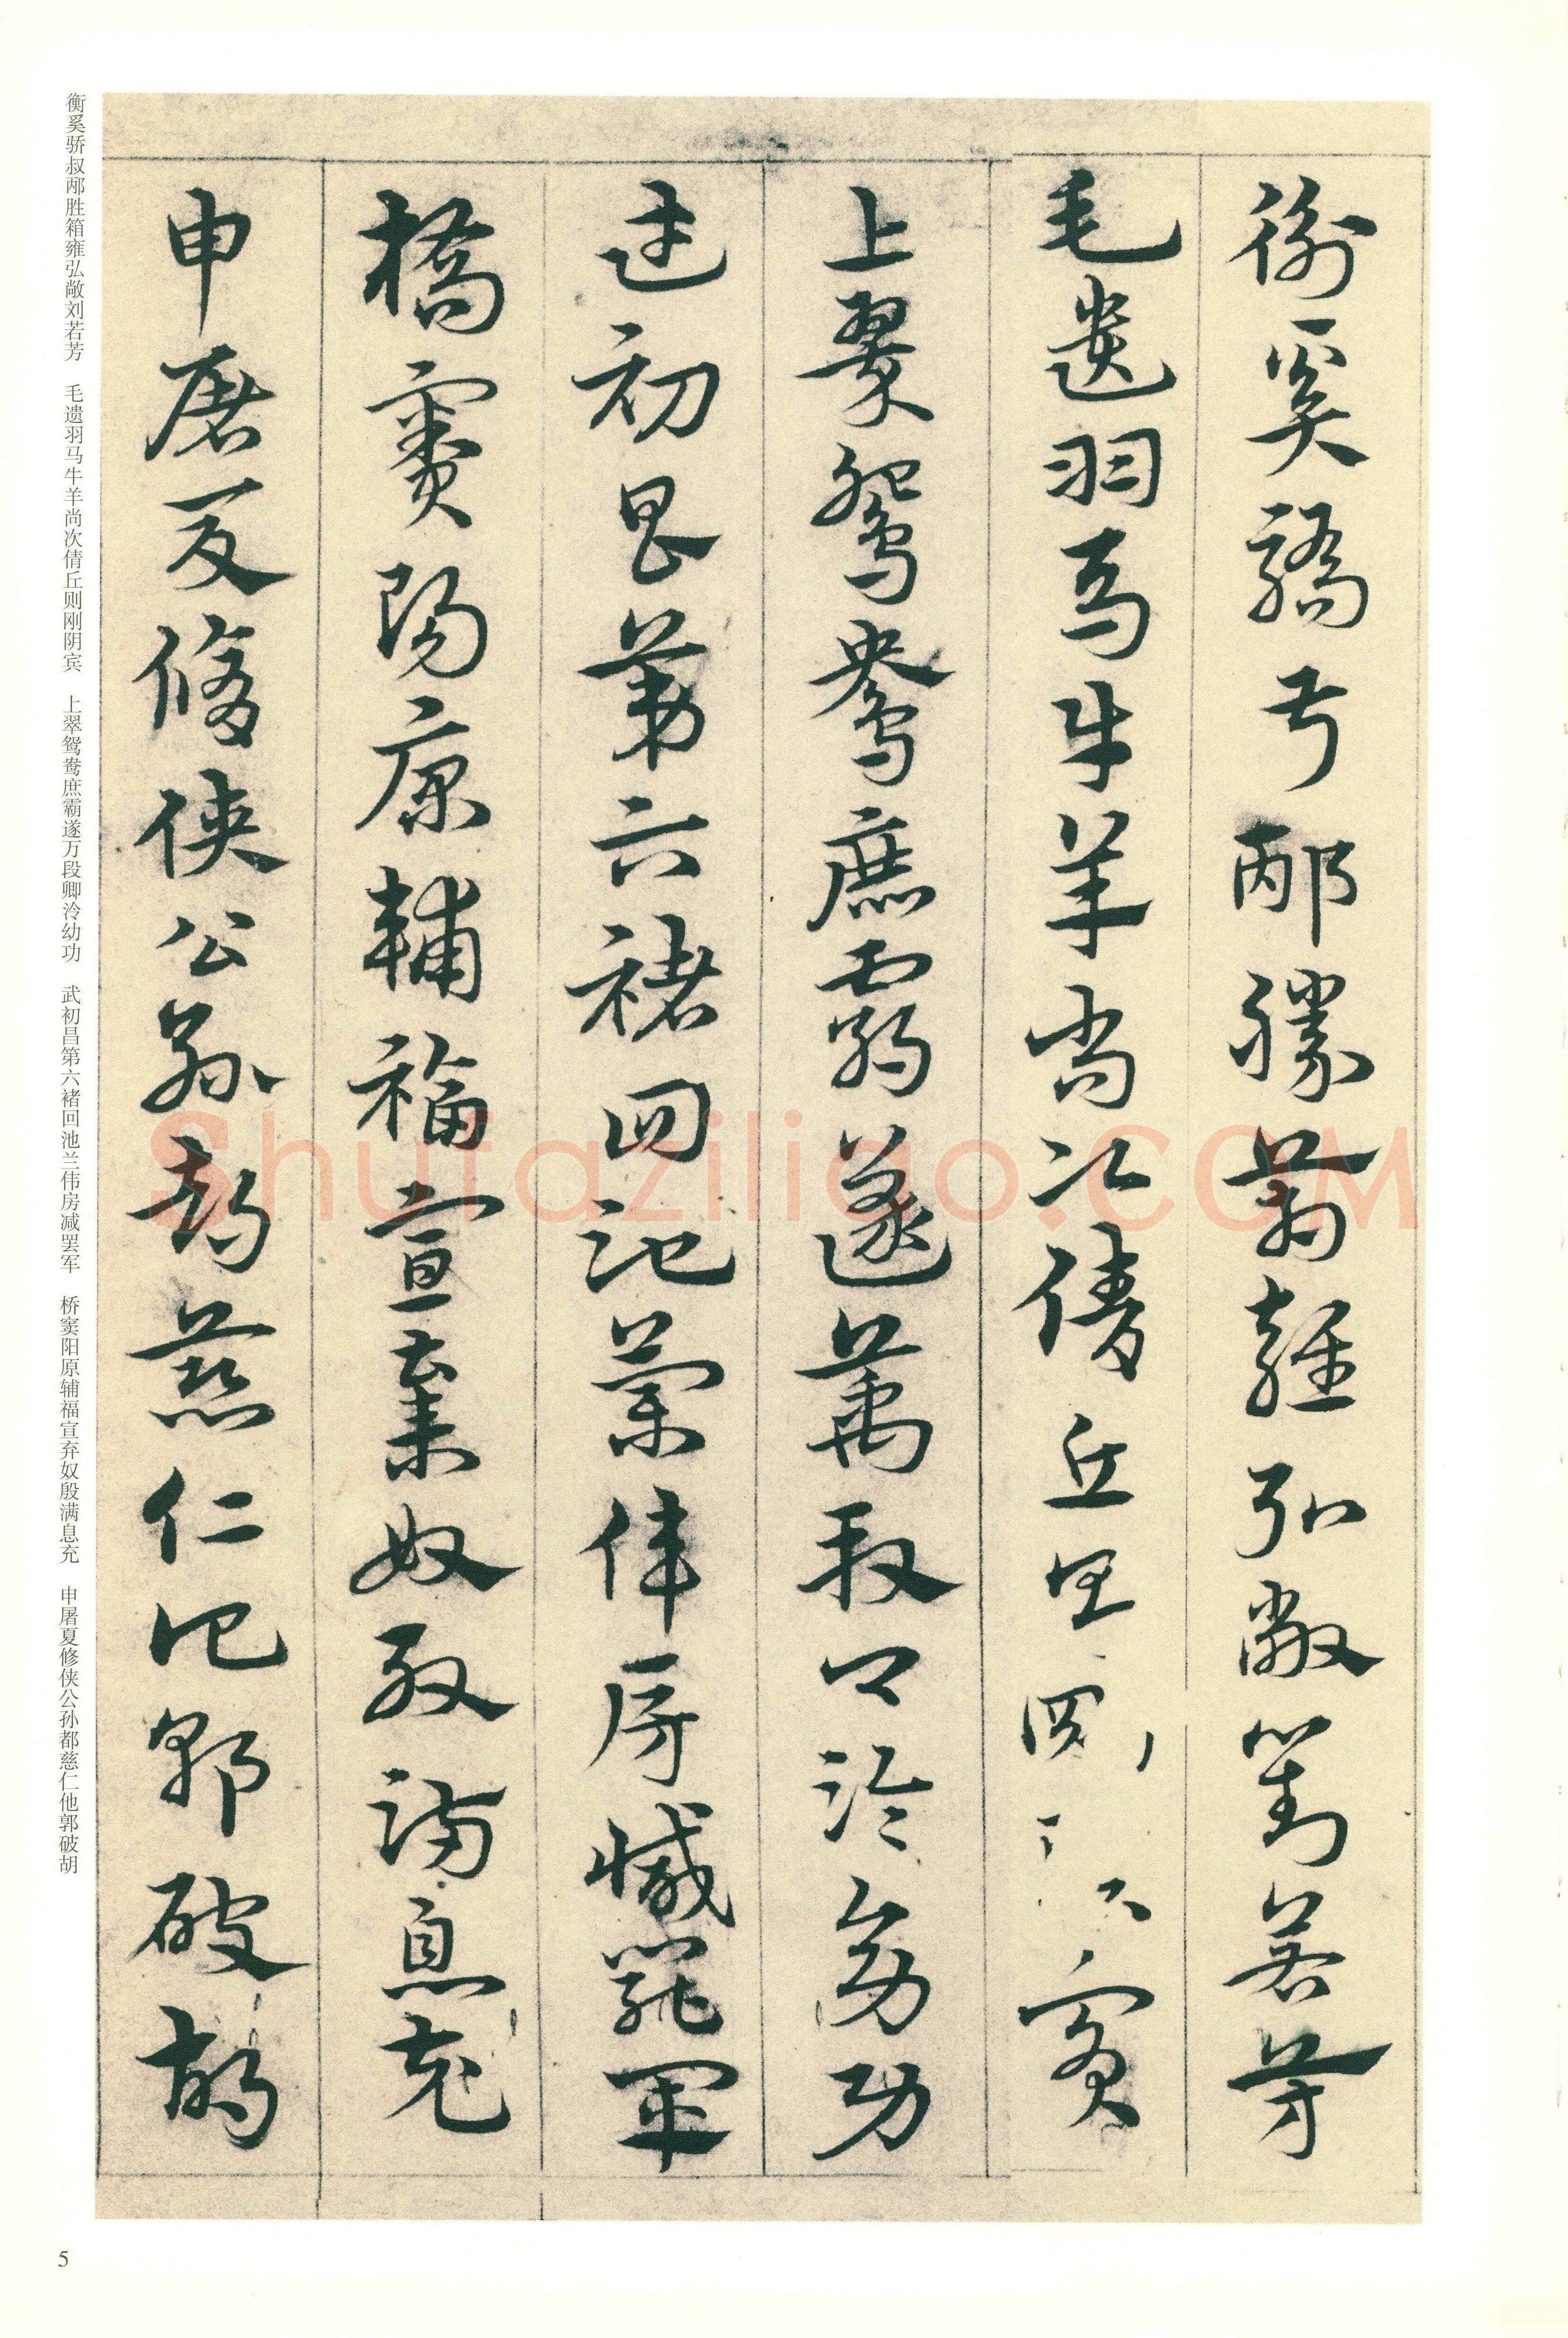 衡奚驕叔邴勝箱雍弘敞劉若芳
毛遺羽馬牛羊尚次倩丘則剛陰賓
上翠鴛鴦庶霸遂萬段卿泠幼功
武初昌第六褚回池蘭偉房減罷軍
橋竇陽原輔福宣棄奴殷滿息充
申屠夏脩俠公孫都慈仁他郭破胡
衡奚骄叔邴胜箱雍弘敞刘若芳 毛遗羽马牛羊尚次倩丘则刚阴宾 上翠鸳鸯庶霸遂万段卿泠幼功 武初昌第六褚回池兰伟房减罢军 桥窦阳原辅福宣弃奴殷满息充 申屠夏修侠公孙都慈仁他郭破胡
5
Shufaziliao.COM